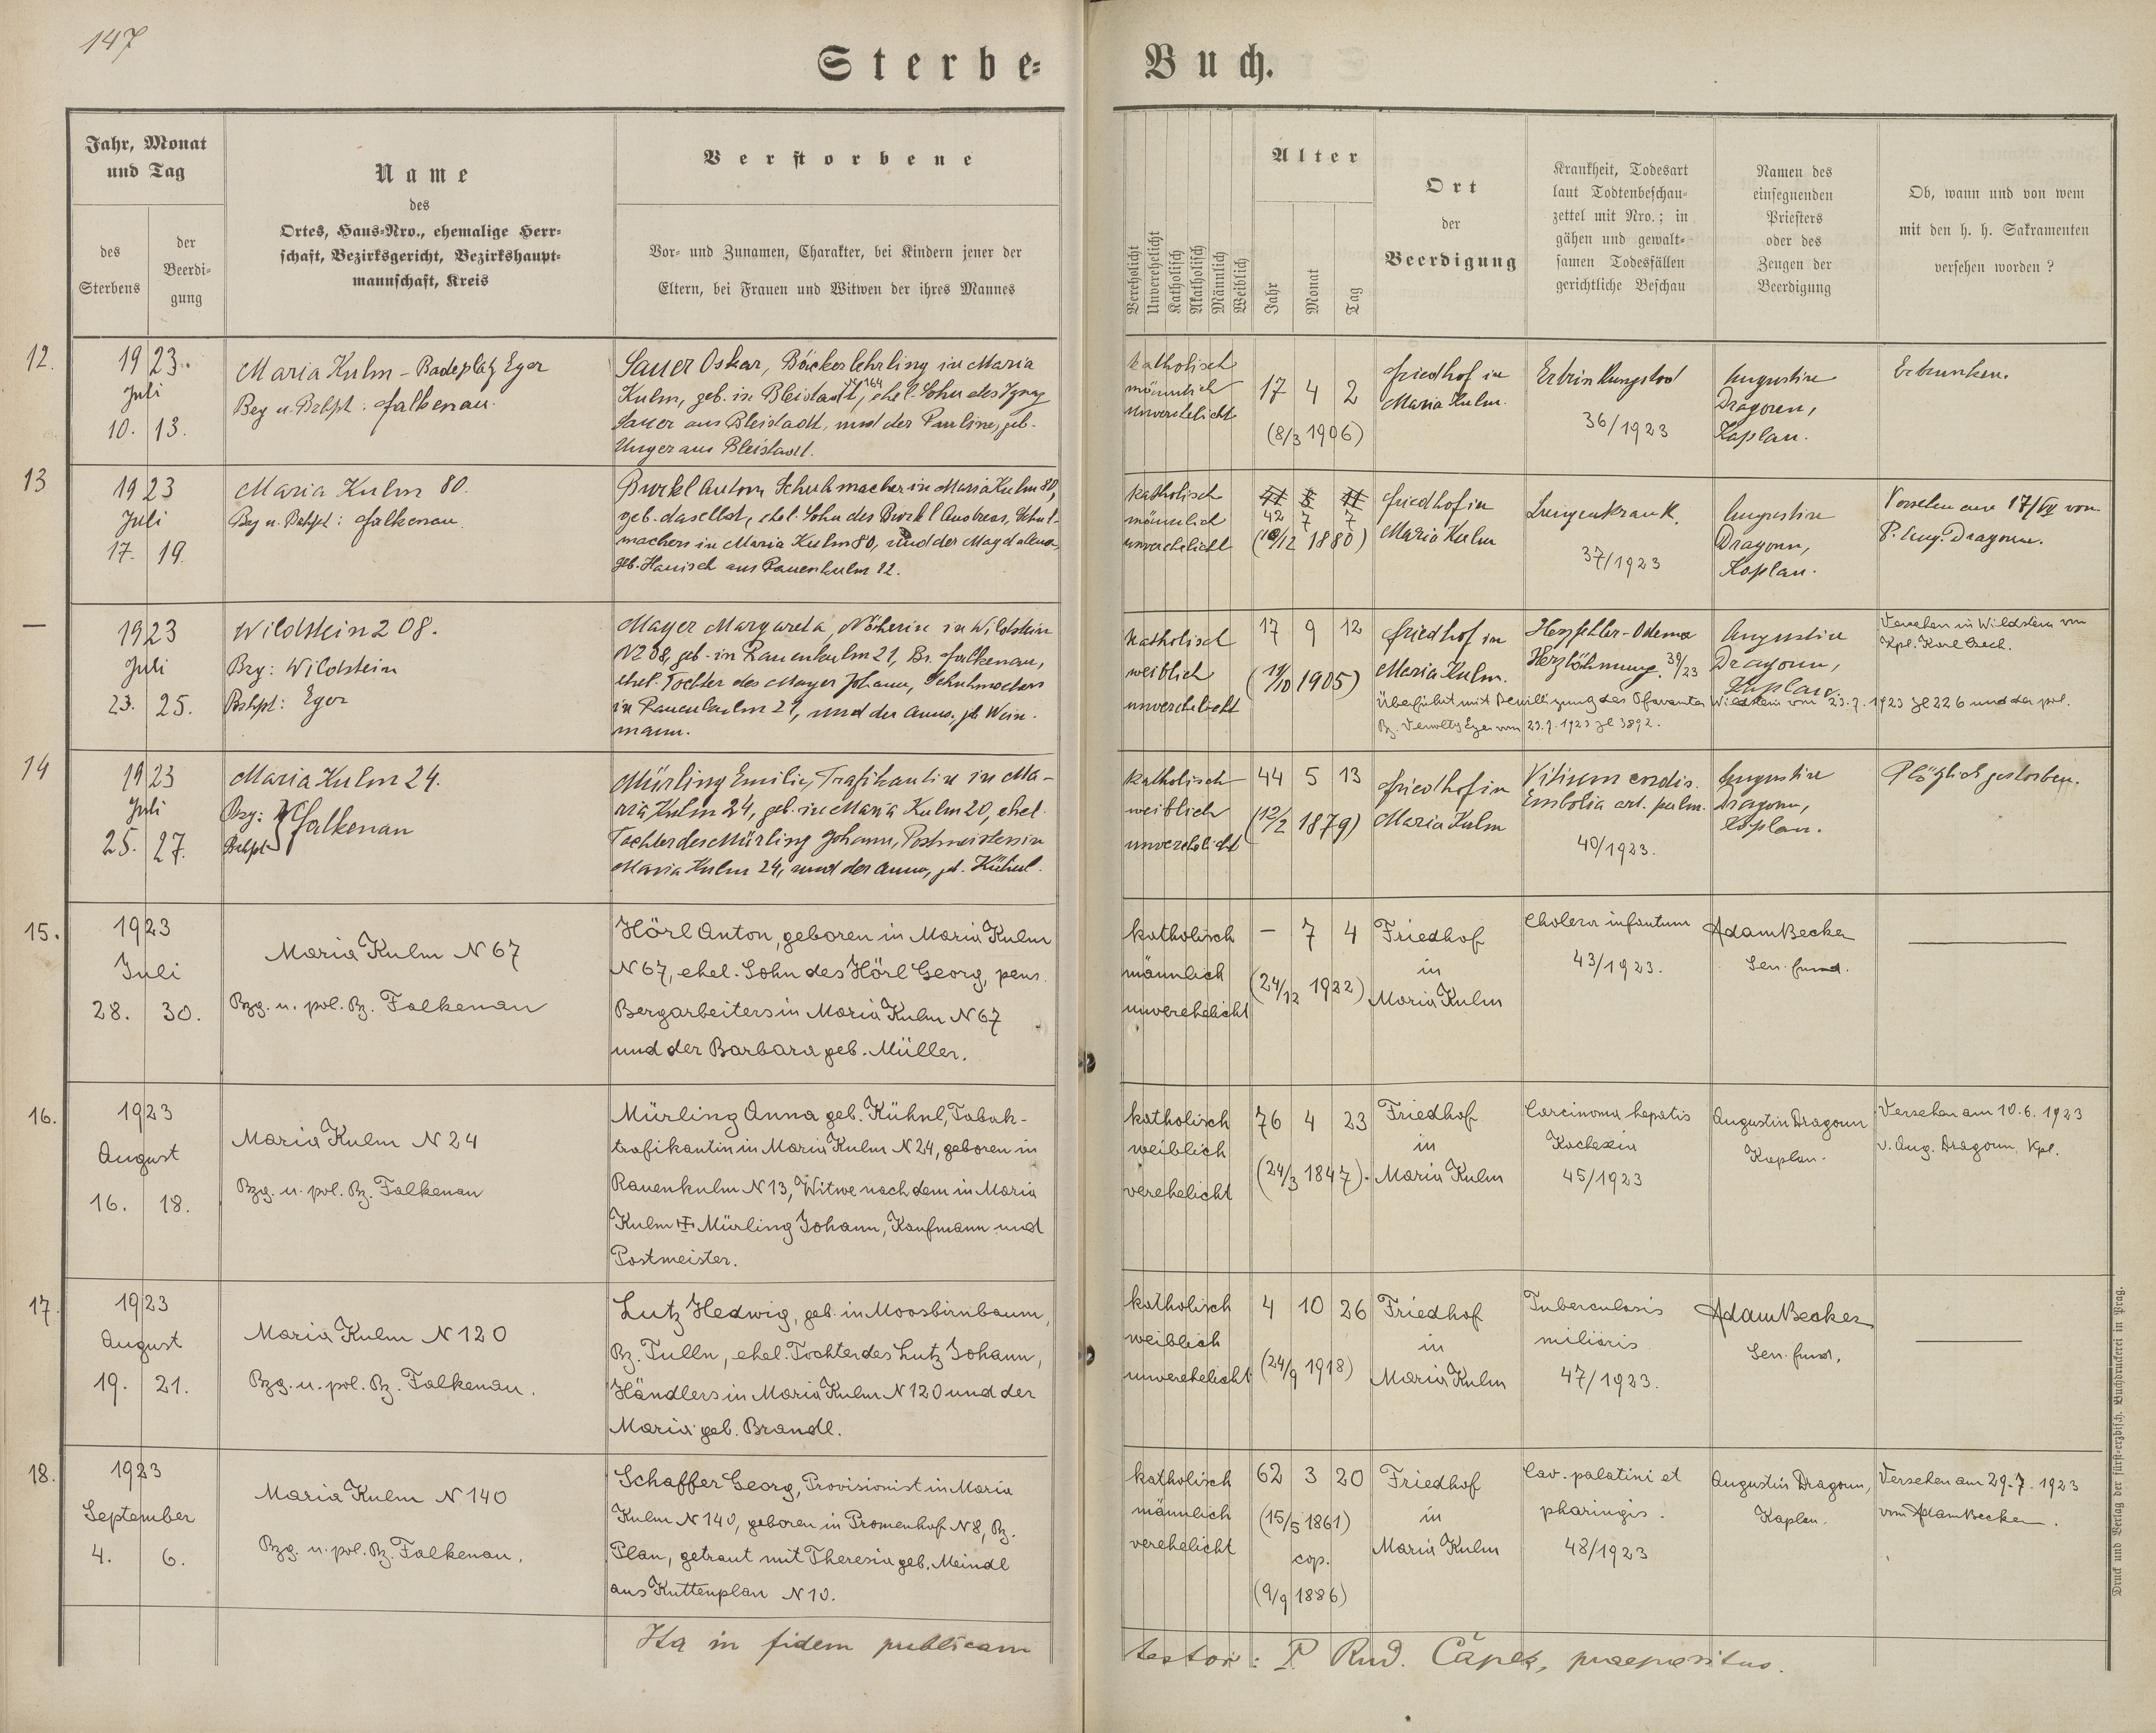 147
Sterbe=
Buch.
Jahr, Monat
und Tag
des
Sterbens
der
Beerdi-
gung
Name
des
Ortes, Haus-Nro., ehemalige Herr-
schaft, Bezirksgericht, Bezirkshaupt-
mannschaft, Kreis
Verstorbene
Vor- und Zunamen, Charakter, bei Kindern jener der
Eltern, bei Frauen und Witwen der ihres Mannes
Verehelicht
Unverehelicht
Katholisch
Akatholisch
Männlich
Weiblich
Alter
Jahr
Monat
Tag
Ort
der
Beerdigung
Krankheit, Todesart
laut Todtenbeschau-
zettel mit Nro.; in
gähen und gewalt-
samen Todesfällen
gerichtliche Beschau
Namen des
einsegnenden
Priesters
oder des
Zeugen der
Beerdigung
Ob, wann und von wem
mit den h. h. Sakramenten
versehen worden ?
12.
1923.
Juli
10. 13.
Maria Kulm - Badeplatz Eger
Bzg u. Bzhpt: Falkenau.
Sauer Oskar, Bäckerlehrling in Maria
Kulm, geb. in Bleistadt, N 164 ehel. Sohn des Ignaz
Sauer aus Bleistadt, und der Pauline, geb.
Unger aus Bleistadt.
katholisch
männlich
unverehelicht
17 4 2
(8/3 1906)
Friedhof in
Maria Kulm.
Ertrinkungstod
36/1923
Augustin
Dragoun,
Kaplan.
Ertrunken.
13
1923
Juli
17. 19.
Maria Kulm 80.
Bzg u. Bzhpt: Falkenau.
Burkl Anton, Schuhmacher in Maria Kulm 80,
geb. daselbst, ehel. Sohn des Burkl Andreas, Schuh-
machers in Maria Kulm 80, und der Magdalena,
geb. Hanisch aus Rauenkulm 12.
katholisch
männlich
unverehelicht
42 7 7
(10/12 1880)
Friedhof in
Maria Kulm
Lungenkrank.
37/1923
Augustin
Dragoun,
Kaplan.
Versehen am 17/VII von
P. Aug. Dragoun.
—
1923
Juli
23. 25.
Wildstein 208.
Bzg: Wildstein
Bzhpt: Eger
Mayer Margareta, Näherin in Wildstein
N208, geb. in Rauenkulm 21, Bz. Falkenau,
ehel. Tochter des Mayer Johann, Schuhmachers
in Rauenkulm 21, und der Anna, geb. Wein-
mann.
katholisch
weiblich
unverehelicht
17 9 12
(11/10 1905)
Friedhof in
Maria Kulm.
Herzfehler-Ödema
Herzlähmung. 39/23
Augustin
Dragoun,
Kaplan.
Versehen in Wildstein von
Kpl. Karl
Überführt mit Bewilligung des Pfarramtes Wildstein vom 23.7.1923 Zl 226 und der pol.
Bz. Verwltg Eger vom 23.7.1923 Zl 3892.
14
1923
Juli
25. 27.
Maria Kulm 24.
Bzg: Falkenau
Bzhpt
Mürling Emilie, Trafikantin in Ma-
ria Kulm 24, geb. in Maria Kulm 20, ehel.
Tochter des Mürling Johann, Postmeisters in
Maria Kulm 24, und der Anna, geb. Kühnl.
katholisch
weiblich
unverehelicht
44 5 13
(12/2 1879)
Friedhof in
Maria Kulm
Vitium cordis.
Embolia art. pulm.
40/1923.
Augustin
Dragoun,
Kaplan.
Plötzlich gestorben.
15.
1923
Juli
28. 30.
Maria Kulm N 67
Bzg. u. pol. Bz. Falkenau
Hörl Anton, geboren in Maria Kulm
N 67, ehel. Sohn des Hörl Georg, pens.
Bergarbeiters in Maria Kulm N 67
und der Barbara geb. Müller.
katholisch
männlich
unverehelicht
— 7 4
(24/12 1922)
Friedhof
in
Maria Kulm
Cholera infantum
43/1923.
Adam Becker
Sen. fund.
16.
1923
August
16. 18.
Maria Kulm N 24
Bzg. u. pol. Bz. Falkenau
Mürling Anna geb. Kühnl, Tabak-
trafikantin in Maria Kulm N 24, geboren in
Rauenkulm N 13, Witwe nach dem in Maria
Kulm ✠ Mürling Johann, Kaufmann und
Postmeister.
katholisch
weiblich
verehelicht
76 4 23
(24/3 1847).
Friedhof
in
Maria Kulm
Carcinoma hepatis
Kachexia
45/1923
Augustin Dragoun
Kaplan.
Versehen am 10.6.1923
v. Aug. Dragoun, Kpl.
17.
1923
August
19. 21.
Maria Kulm N 120
Bzg. u. pol. Bz. Falkenau.
Lutz Hedwig, geb. in Moosbirnbaum,
Bz. Tulln, ehel. Tochter des Lutz Johann,
Händlers in Maria Kulm N 120 und der
Maria geb. Brandl.
katholisch
weiblich
unverehelicht
4 10 26
(24/9 1918)
Friedhof
in
Maria Kulm
Tuberculosis
miliaris
47/1923.
Adam Becker
Sen. fund.
18.
1923
September
4. 6.
Maria Kulm N 140
Bzg. u. pol. Bz. Falkenau.
Schaffer Georg, Provisionist in Maria
Kulm N 140, geboren in Promenhof N 8, Bz.
Plan, getraut mit Theresia geb. Meindl
aus Kuttenplan N 10.
katholisch
männlich
verehelicht
62 3 20
(15/5 1861)
cop.
(9/9 1886)
Friedhof
in
Maria Kulm
Cav. palatini et
pharingis.
48/1923
Augustin Dragoun,
Kaplan.
Versehen am 29.7.1923
vom Adam Becker.
Ita in fidem publicam
testor: P. Rud. Čapek, praepositus.
Druck und Verlag der fürst-erzbisch. Buchdruckerei in Prag.